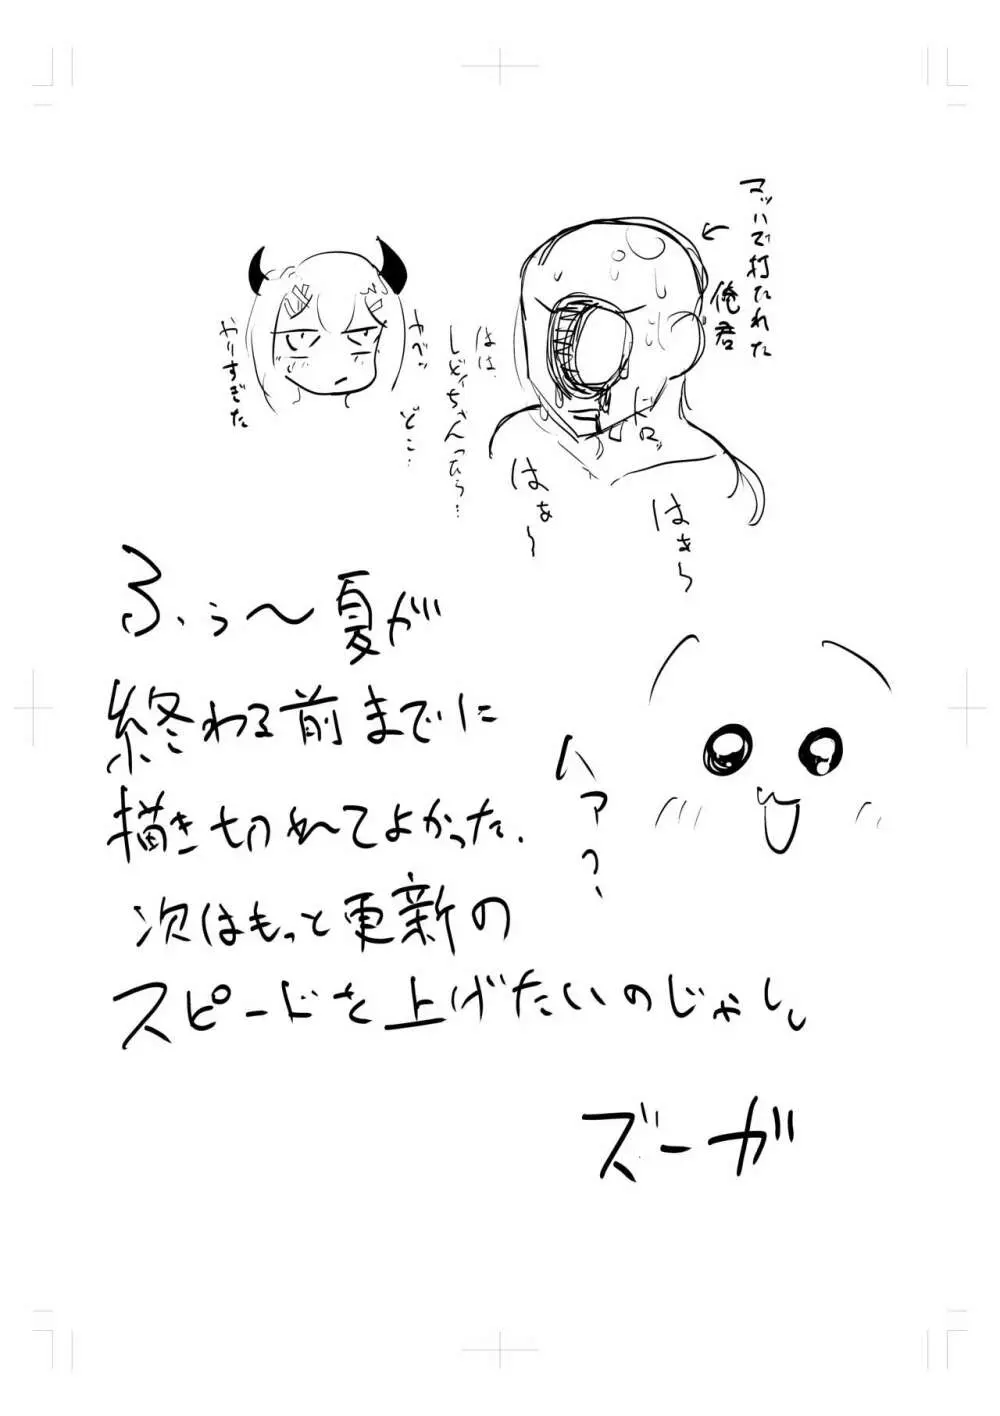 マッハで打たれた
俺君
はは、
しどいちゃんったら…
ドロッ
はぁ〜
はぁ〜
ヤベッ
どこ…
やりすぎた
ふぅ〜夏が
終わる前までに
描き切れてよかった.
次はもっと更新の
スピードを上げたいのじゃし、
ハァ?
ズーガ